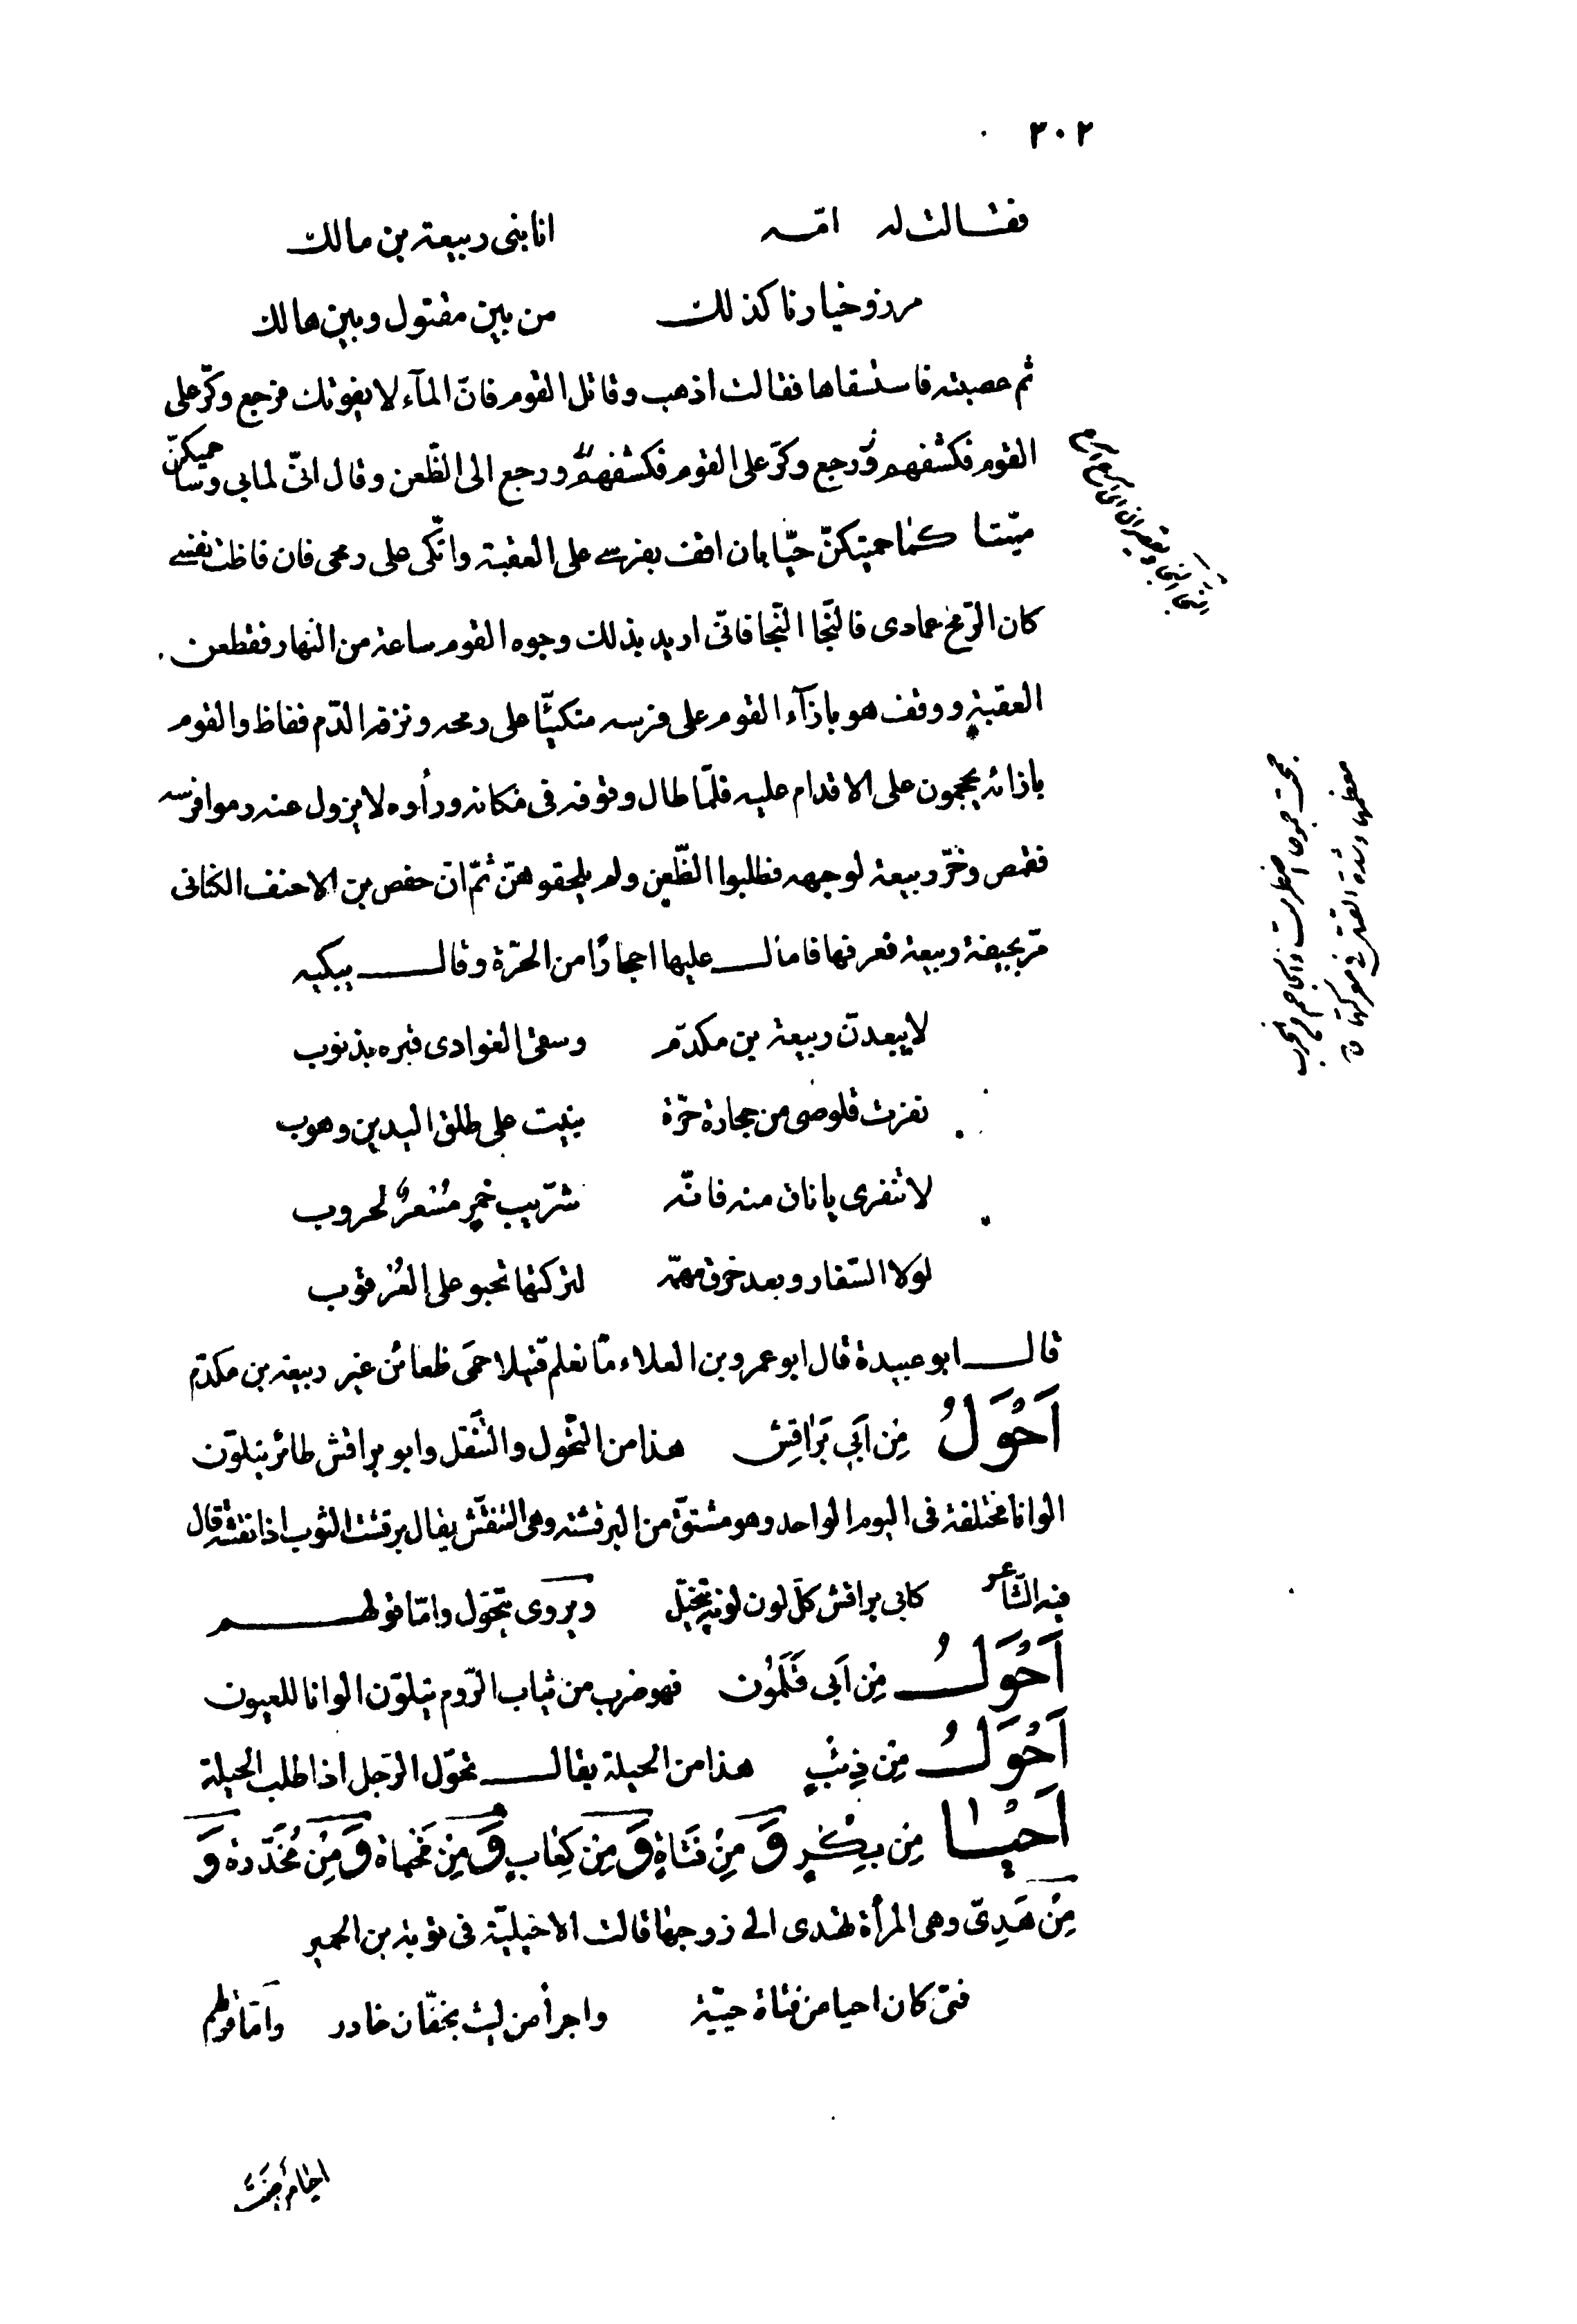 ٣٠٢
فقالت له امّه انا بنی ربیعة بن مالك
مرزؤ خیارنا كذلك من بین مقتول وبین هالك
ثم عصبته فاستسقاها فقالت اذهب وقاتل القوم فانّ المآء لا یفوتك فرجع وكرّ علی
القوم فكشفهم ورجع وكرّ علی القوم فكشفهم ورجع الی الظّعن وقال انّی لمابی وساحمیكنّ
میّتا كما حمیتكنّ حیّا بان اقف بفرسی علی العقبة واتّكی علی رمحی فان فاظت نفسی
كان الرّمح عمادی فالنّجا النّجا فانّی ارید بذلك وجوه القوم ساعة من النهار فقطعن
العقبة ووقف هو بازآء القوم علی فرسه متكیّا علی رمحه ونزفه الدّم ففاظ والقوم
بازائه یحجمون علی الاقدام علیه فلمّا طال وقوفه فی مكانه ورأوه لا یزول عنه رموا فرسه
فقمص وخرّ ربیعة لوجهه فطلبوا الظّعن ولم یلحقوهنّ ثمّ انّ حفص بن الاحنف الكنانی
مرّ بجیفة ربیعة فعرفها فامال علیها احجارًا من الحرّة وقال یبكیه
لا یبعدنّ ربیعة بن مكدّم وسقی الغوادی قبره بذنوب
نفرت قلوصی من حجارة حرّة بنیت علی طلق الیدین وهوب
لا تنفری یا ناق منه فانّه شرّیب خمر مسعر لحروب
لولا السّفار وبعد خرق مهمه لتركتها تحبو علی العرقوب
قال ابو عبیدة قال ابو عمرو بن العلاء ما نعلم قتیلا حمی ظعائن غیر ربیعة بن مكدّم
اَحْوَلُ مِن اَبی بَرَاقِش هذا من التحّول والتّنقل وابو براقش طائر یتلوّن
الوانا مختلفة فی الیوم الواحد وهو مشتقّ من البرقشة وهی النّقش یقال برقشت الثوب اذا نقشته قال
فیه الشّاعر كابی براقش كلّ لون لونه یتخیّل ویروی یتحوّل وامّا قولهم
اَحْوَلُ مِن اَبی قَلَمُون فهو ضرب من ثیاب الرّوم یتلوّن الوانا للعیون
اَحْوَلُ مِن ذِئبٍ هذا من الحیلة یقال تحوّل الرّجل اذا طلب الحیلة
اَحیَا مِن بِكْرٍ وَ مِن فَتَاةٍ وَ مِن كِعَابٍ وَ مِن مخبأة وَ مِن مُخَدَّرة وَ
مِن هَدِیّ وهی المرأة تهدی الی زوجها قالت الاخیلیّة فی توبة بن الحمیر
فتی كان احیا من فتاة حییّة واجرأ من لیث بخفّان خادر وامّا قولهم